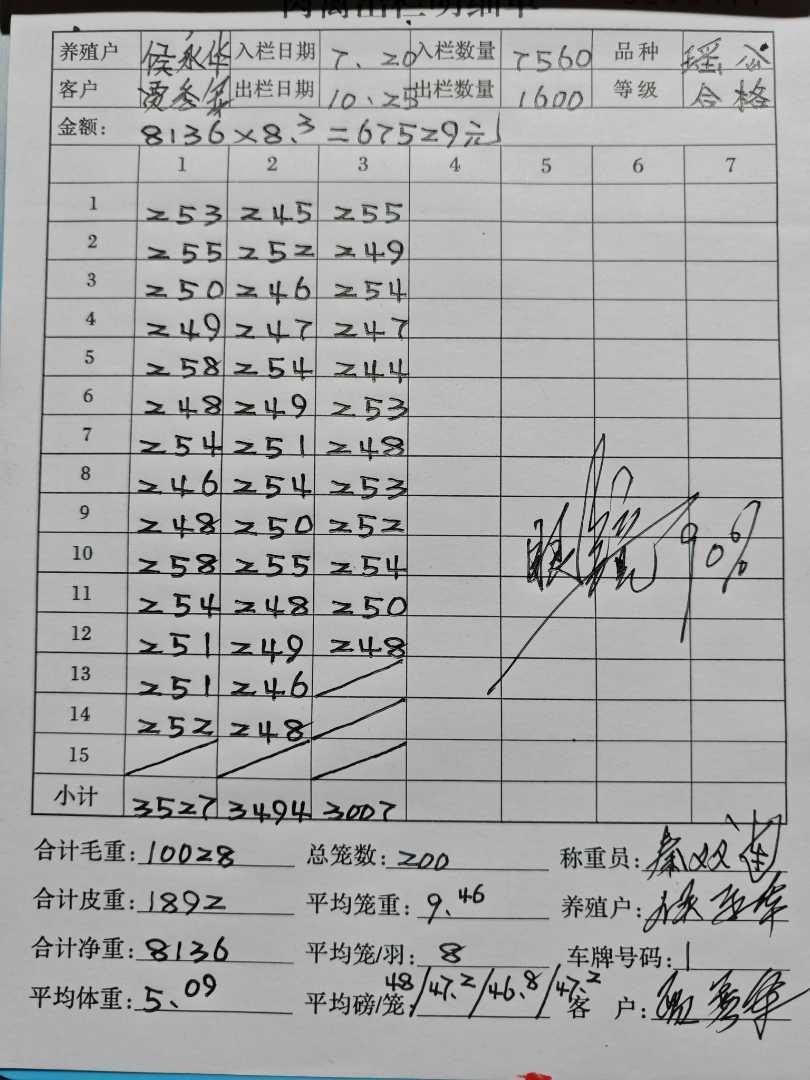 养殖户 侯永华 入栏日期 7.20 入栏数量 7560 品种 瑶公
客户 出栏日期 10.25 出栏数量 1600 等级 合格
金额: 8136×8.3=67529元
1 2 3 4 5 6 7
1 253 245 255
2 255 252 249
3 250 246 254
4 249 247 247
5 258 254 244
6 248 249 253
7 254 251 248
8 246 254 253
9 248 250 252
10 258 255 254
11 254 248 250
12 251 249 248
13 251 246
14 252 248
15
90%
小计 3527 3494 3007
合计毛重: 10028 总笼数: 200 称重员: 秦双
合计皮重: 1892 平均笼重: 9.46 养殖户:
合计净重: 8136 平均笼/羽: 8 车牌号码: 1
平均体重: 5.09 平均磅/笼: 48/47.2/46.8/47.2 客 户: